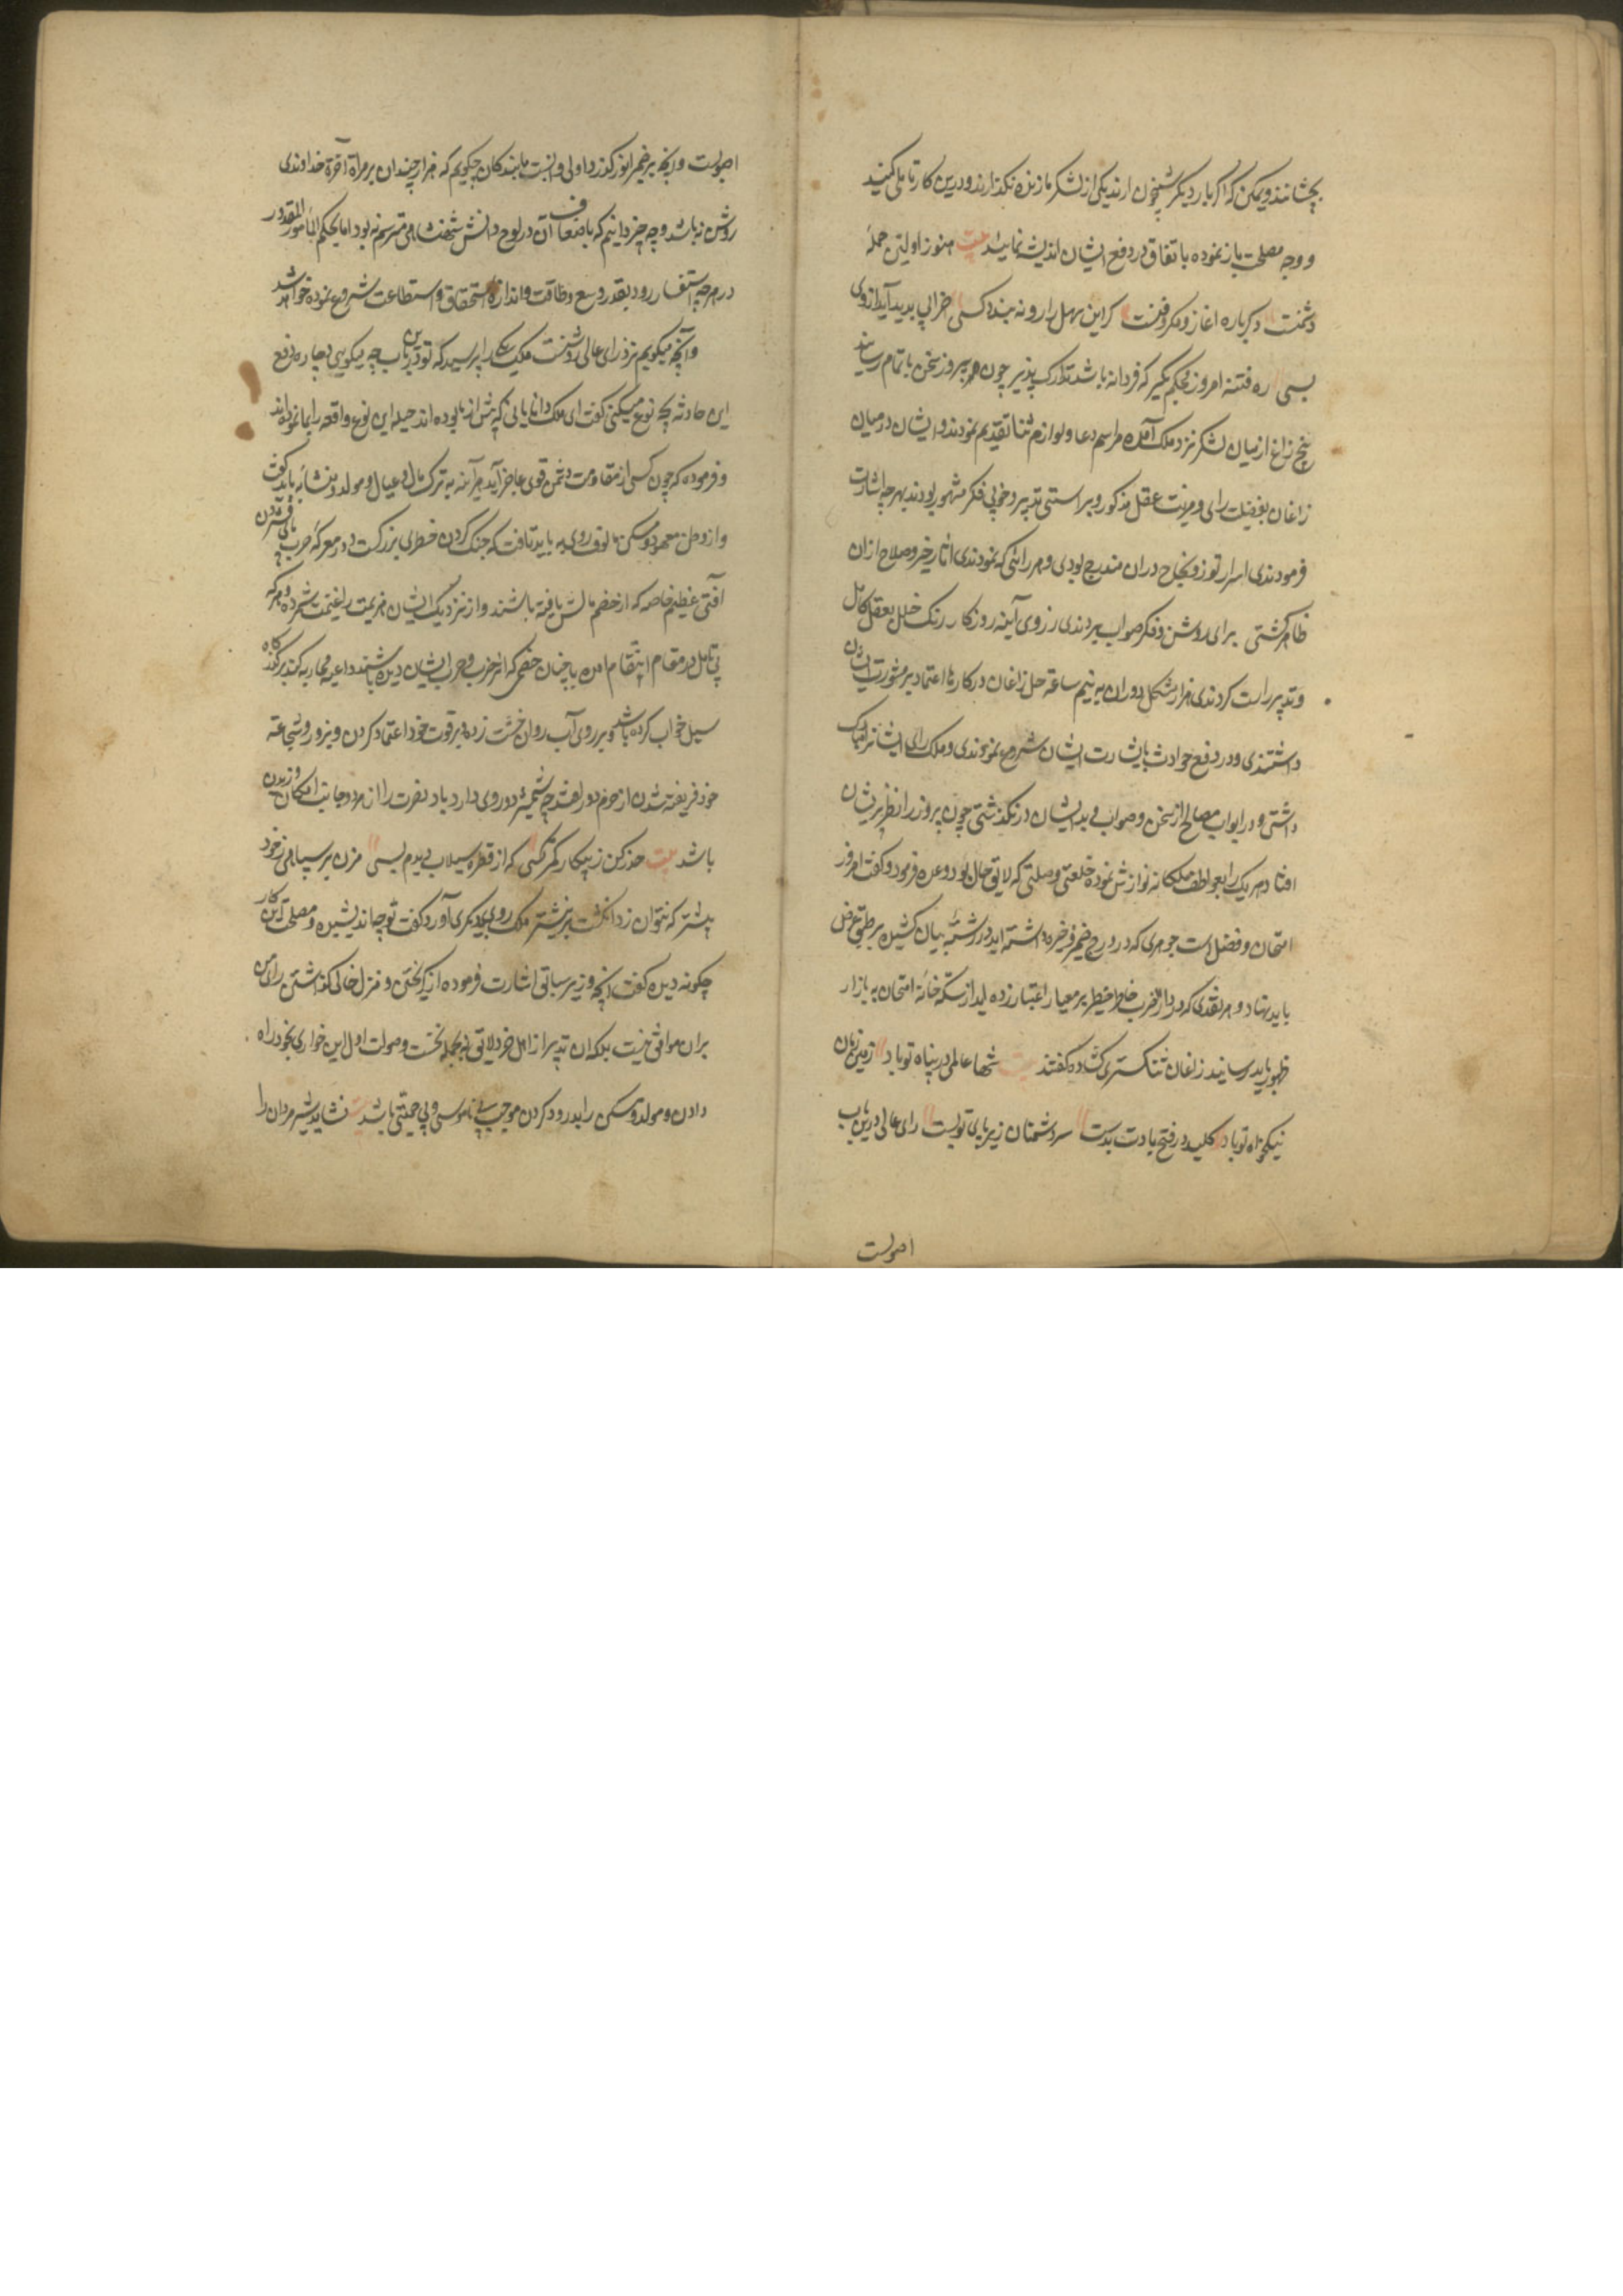 بچشانند و یمکن که اگر بار دیگر شبیخون ارند یکی از لشکر ما زنده نگذارند و درین کار تاملی کنید
و وجه مصلحت باز نموده باتفاق در دفع ایشان اندیشه نمایید بیت هنوز اولین حمله
دشمنست دگرباره اغاز و مکر و فنست گر این سهل را رو نه بندد کسی خرابی پدید آید از وی
بسی ره فتنه امروز محکم بگیر که فردا نه باشد تدارک پذیر چون پیروز سخن باتمام رسانید
پنج زاغ از میان لشکر نزد ملک آمده مراسم دعا و لوازم ثنا تقدیم نمودند و ایشان در میان
زاغان بفضیلت رای و مزیت عقل مذکور و براستی تدبیر و خوبی فکر مشهور بودند بهرچه اشارت
فرمودندی اسرار فوز و نجاح دران مندرج بودی و هر رائی که نمودندی اثار خیر و صلاح ازان
ظاهر گشتی برای روشن و فکر صواب ببردندی ز روی آینه روزگار رنگ خلل بعقل کامل
و تدبیر راست کردندی هزار مشکل دوران به نیم ساعته حل زاغان در کارها اعتماد بر مشورت ایشان
داشتندی و در دفع حوادث باشارت ایشان شروع نمودندی و ملک رای ایشانرا مبارک
داشتی و در ابواب مصالح از سخن و صواب دید ایشان در نگذشتی چون پیروز را نظر بریشان
افتاد هر یک را بعواطف ملکانه نوازش نموده خلعتی و صلتی که لایق حال بود وعده فرمود و گفت امروز
امتحان و فضل است جوهری که در درج ضمیر ذخیره داشته اید در رشته بیان کشیده بر طبق عرض
باید نهاد و هر نقدی که در دارالضرب خاطر خطیر بر معیار اعتبار زده اید از سکه خانه امتحان به بازار
ظهور باید رسانید زاغان ثنا گستری کشاده گفتند بیت شها عالمی در پناه تو باد زمین زمان
نیکخواه تو باد کلید در فتح بادت بدست سر دشمنان زیر پای تو پست رای عالی درین باب
اصوبست
اصوبست و آنچه بر ضمیر انور گذرد اولی و انسبت ما بندگان چگویم که هزار چندان بر مراة خداوندی
روشن نباشد و چه چیز دانیم که باضعاف آن در لوح دانش شهنشاهی مترسم نه بود اما بحکم المامور المعذور
در هرچه استفسار رود بقدر وسع و طاقت و اندازه استحقاق و استطاعت شروع نموده خواهد شد
و آنچه میگویم نزد رای عالی روشنست ملک یکی را پرسید که تو درین باب چه میگویی و چاره دفع
این حادثه بچه نوع میکنی گفت ای ملک دانایانی که پیش از ما بوده اند حیله این نوع واقعه را بما نموده اند
و فرموده که چون کسی از مقاومت دشمن قوی عاجز آید هر آینه به ترک مال و عیال و مولد و منشا باید گفت
و از وطن معهود و مسکن مالوف روی به باید تافت که جنگ کردن خطری بزرگست و در معرکه حرب پای فشردن
آفتی عظیم خاصه که از خصم مالش یافته باشند و از نزدیک ایشان هزیمت را غنیمت شمرده و هر که
بی تامل در مقام انتقام آمده با چنان خصمی که از ضرب و حرب ایشان دیده باشند داعیه محاربه کند بر گذرگاه
سیل خواب کرده باشد و بر روی آب روان خشت زده و بر قوت خود اعتماد کردن و بزور و شجاعته
خود فریفته شدن از حزم دور افتد چه شمشیر دو روی دارد و باد نصرت را از هر دو جانب امکان وزیدن
باشد بیت حذر کن ز پیکار کمتر کسی که از قطره سیلاب دیدم بسی مزن بر سپاهی ز خود
بیشتر که نتوان زد انگشت بر نیشتر ملک روی بدیگری آورد گفت تو چه اندیشیده و مصلحت این کار
چگونه دیده گفت آنچه وزیر سباتی اشارت فرموده از گریختن و منزل خالی گذاشتن رای من
بران موافق نیست بلکه این تدبیر از اهل خرد لایق نه بجمله نخست و صولت اول این خواری بخود راه
دادن و مولد و مسکن را بدرود کردن موجب بی ناموسی و بی حمیتی باشد بیت نشاید شیرمردان را